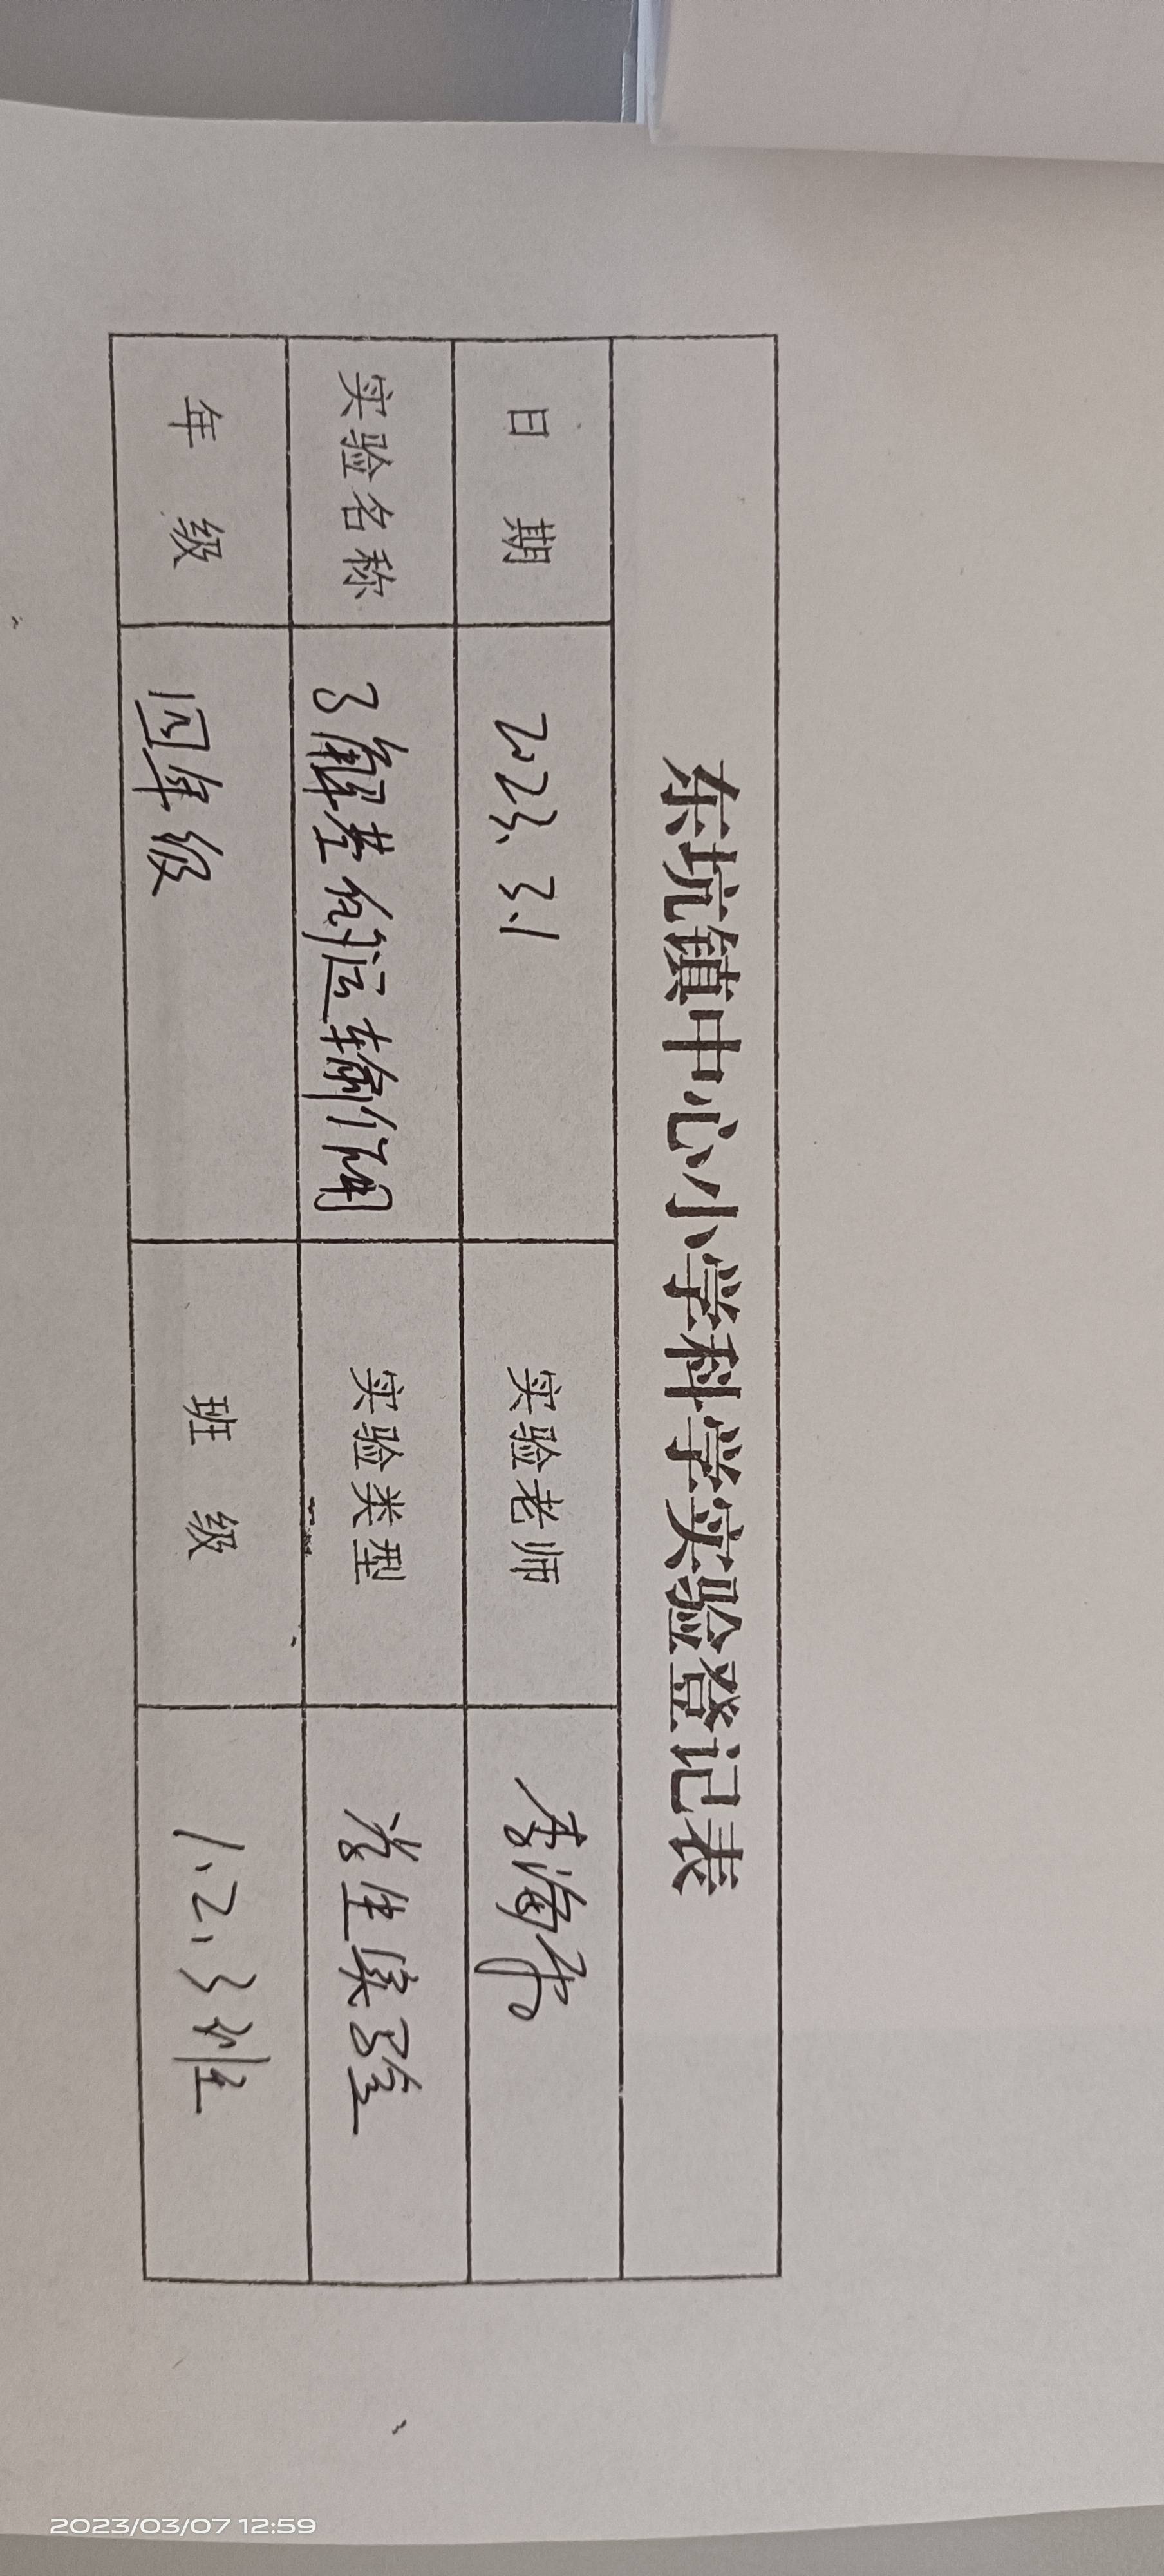 东坑镇中心小学科学实验登记表
日 期 2023.3.1 实验老师 李海
实验名称 了解茎的运输作用 实验类型 学生实验
年 级 四年级 班 级 1、2、3班
2023/03/07 12:59